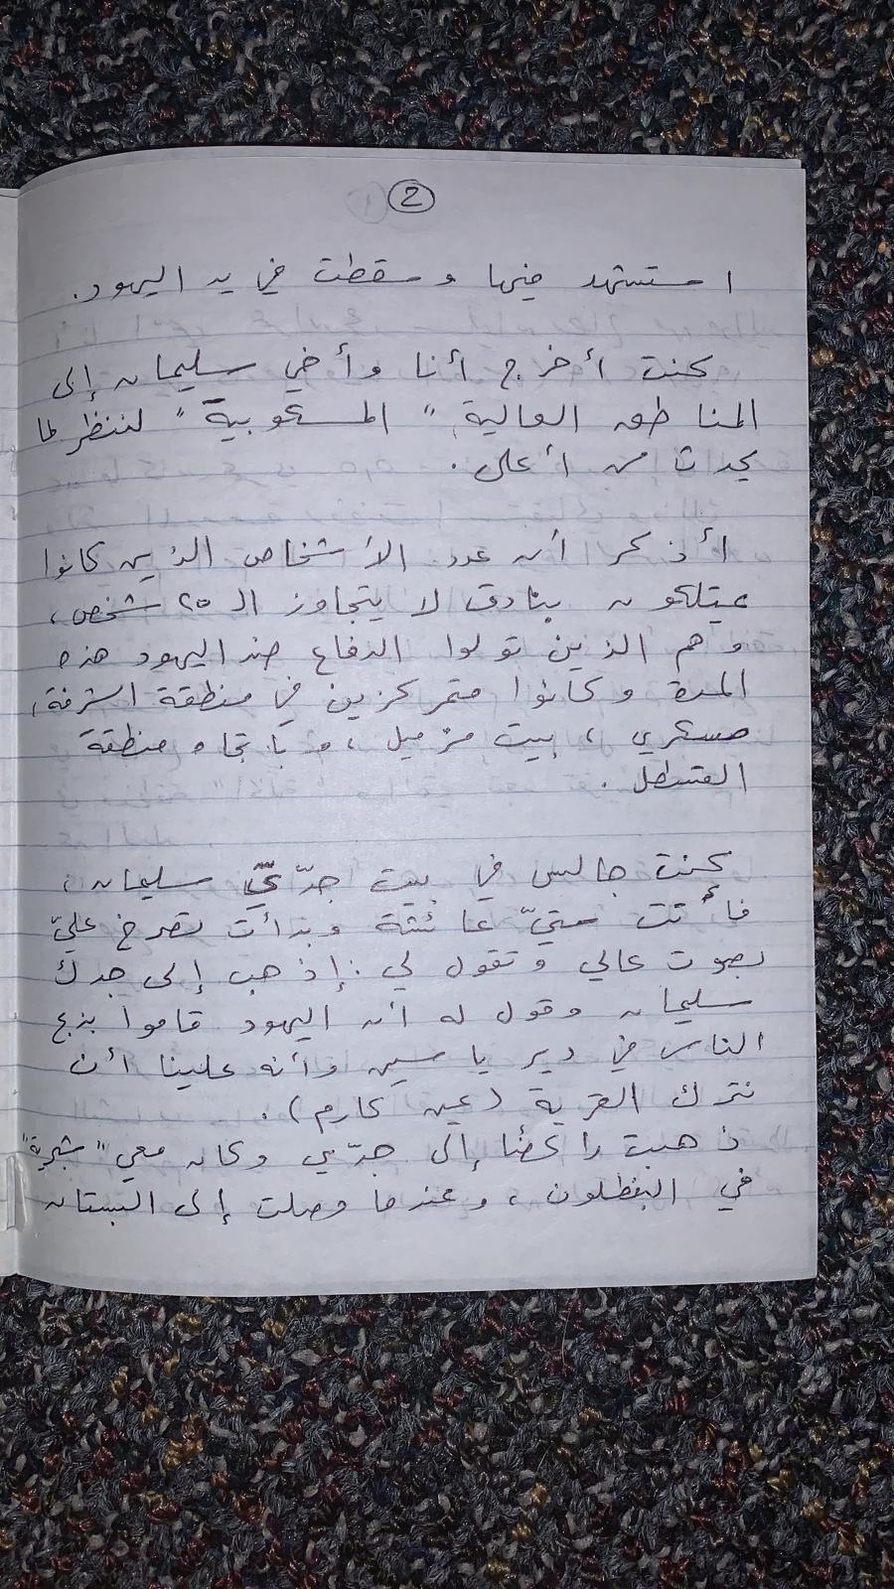 2
استشهد فيها وسقطت في يد اليهود.
كنت أخرج أنا وأخي سليمان إلى
المناطق العالية "المسكوبية" لننظر لما
يحدث من أعلى.
أذكر أن عدد الأشخاص الذين كانوا
يمتلكون بنادق لا يتجاوز الـ ٢٥ شخص،
وهم الذين تولوا الدفاع ضد اليهود هذه
المدة وكانوا متمركزين في منطقة الشرفة،
مسكري، بيت مزميل، وباتجاه منطقة
القسطل.
كنت جالس في بيت جدّي سليمان،
فأتت ستيّ عائشة وبدأت تصرخ عليّ
بصوت عالي وتقول لي: إذهب إلى جدك
سليمان وقول له أن اليهود قاموا بذبح
الناس في دير ياسين وأنه علينا أن
نترك القرية (عين كارم).
ذهبت راكضًا إلى جدّي وكان معي "شبرية"
في البنطلون، وعندما وصلت إلى البستان